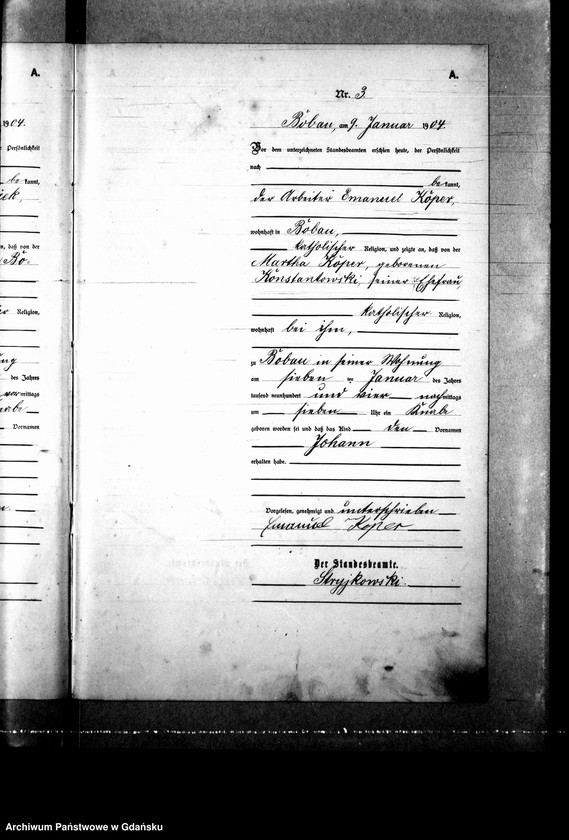 A.
1904.
r Persönlichkeit
be kannt,
n, daß von der
Bo-
Religion,
des Jahres
mittags
Vornamen
A.
Nr. 3
Bobau, am 9. Januar 1904.
Vor dem unterzeichneten Standesbeamten erschien heute, der Persönlichkeit
nach
be kannt,
der Arbeiter Emanuel Köper,
wohnhaft in Bobau,
katholischer Religion, und zeigte an, daß von der
Martha Köper, geborenen
Konstankowski, seiner Ehefrau,
katholischer Religion,
wohnhaft bei ihm,
zu Bobau in seiner Wohnung
am sieben ten Januar des Jahres
tausend neunhundert und vier nachmittags
um sieben Uhr ein Knabe
geboren worden sei und daß das Kind den Vornamen
Johann
erhalten habe.
Vorgelesen, genehmigt und unterschrieben
Emanuel Koper
Der Standesbeamte.
Stryjkowski.
Archiwum Państwowe w Gdańsku